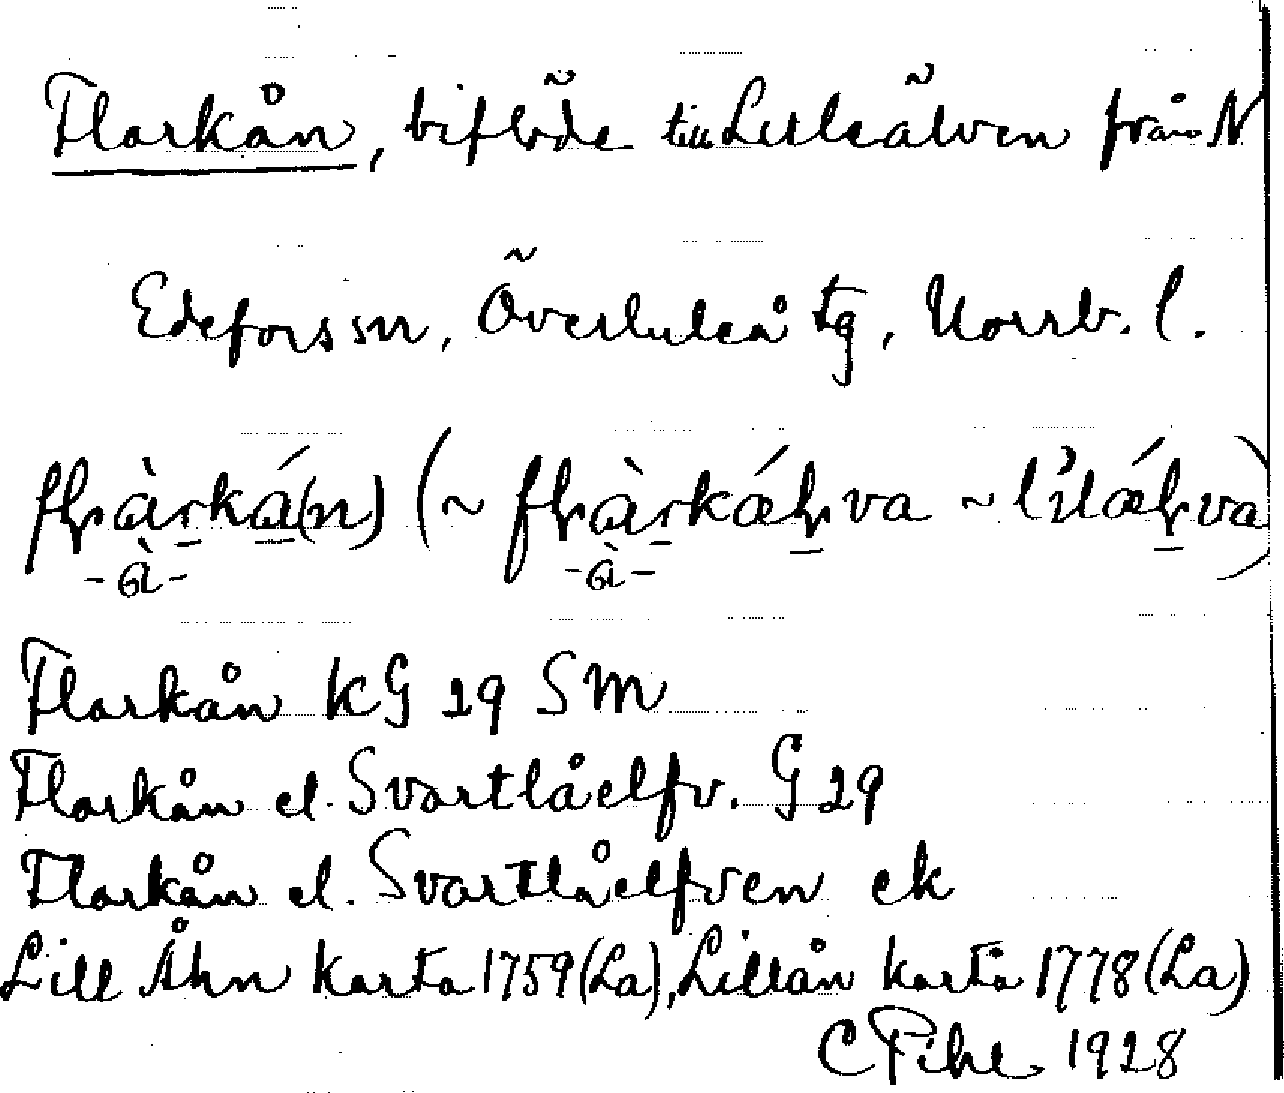 Flarkån, biflöde till Luleälven från N
Edefors sn, Överluleå tg, Norrb. l.
Flarkån KG 29 SM
Flarkån el. Svartlåelfv. G 29
Flarkån el. Svartlåelfven ek
Lill Åhn karta 1759 (La), Lillån karta 1778 (La)
C Pihl 1928